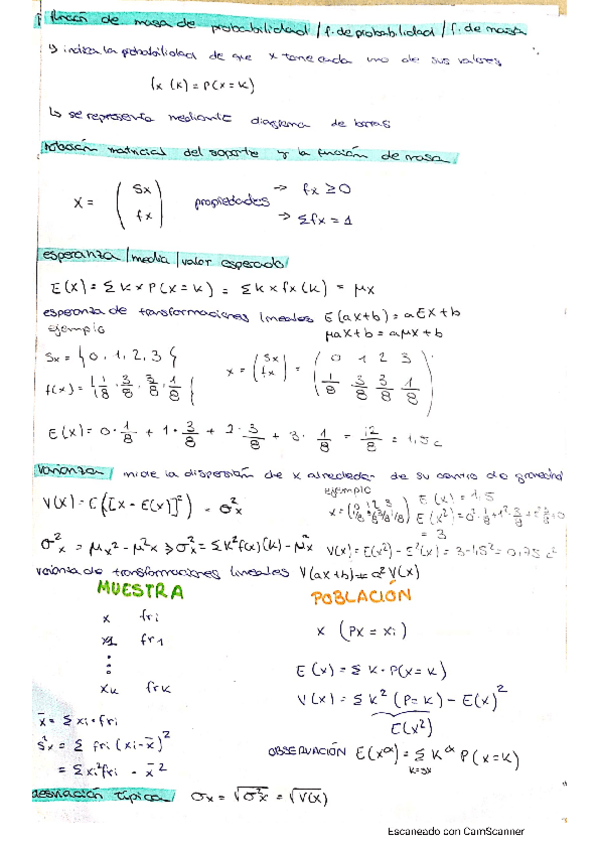 función de masa de probabilidad / f. de probabilidad / f. de masa
↳ indica la probabilidad de que x tome cada uno de sus valores
fx (k) = P(x = k)
↳ se representa mediante diagrama de barras
notación matricial del soporte y la función de masa
x = ( Sx fx ) propiedades → fx ≥ 0 → Σfx = 1
esperanza / media / valor esperado
E(x) = Σ k × P(x = k) = Σ k × fx(k) = μx
esperanza de transformaciones lineales E(ax+b) = aEx + b
ejemplo μax+b = aμx + b
Sx = {0, 1, 2, 3} x = ( Sx fx ) = ( 0 1 2 3 1/8 3/8 3/8 1/8 )
f(x) = { 1/8, 3/8, 3/8, 1/8 }
E(x) = 0 · 1/8 + 1 · 3/8 + 2 · 3/8 + 3 · 1/8 = 12/8 = 1,5 c
varianza / mide la dispersión de x alrededor de su centro de gravedad
V(x) = E([x - E(x)]²) = σ²x
ejemplo E(x) = 1,5
σ²x = μx² - μ²x → σ²x = Σk² f(x)(k) - μ²x V(x) = E(x²) - E²(x) = 3 - 1,5² = 0,75 c²
varianza de transformaciones lineales V(ax+b) = a² V(x)
MUESTRA
x fri
x1 fr1
xk frk
x̄ = Σ xi · fri
S²x = Σ fri (xi - x̄)²
= Σ xi² fri - x̄²
POBLACIÓN
x (Px = xi)
E(x) = Σ k · P(x = k)
V(x) = Σ k² (P = k) - E(x)²
E(x²)
OBSERVACIÓN E(x^α) = Σ k^α P(x = k)
desviación típica / σx = √σ²x = √V(x)
Escaneado con CamScanner